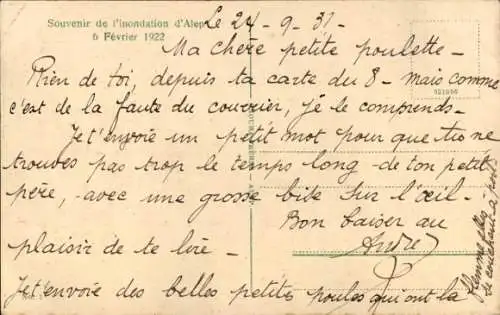 Souvenir de l'inondation d'Alep
6 Février 1922
Le 24-9-31-
Ma chère petite poulette-
Rien de toi, depuis ta carte du 8- mais comme
c'est de la faute du courrier, je le comprends-
Je t'envoie un petit mot pour que tu ne
trouves pas trop le temps long - de ton petit
père, - avec une grosse bise sur l'œil-
Bon baiser au
plaisir de te lire-
André
Je t'envoie des belles petites poules qui ont la
flemme